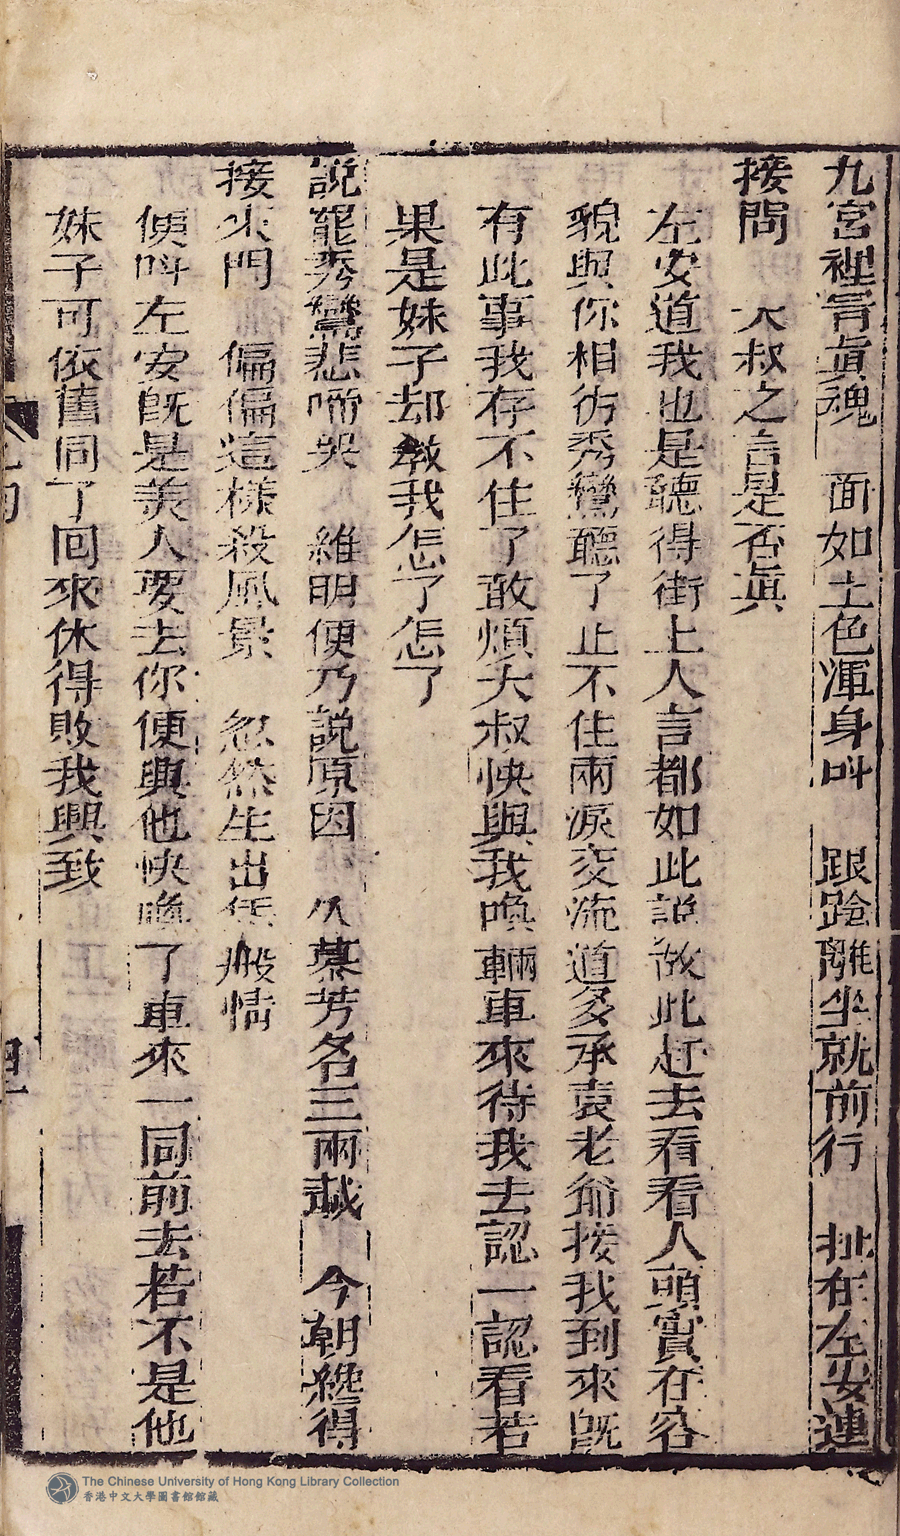 九宮裡答眞魂　面如土色渾身呌　踉蹌離坐就前行　扯在左安連
接問　大叔之言是否眞
左安道我也是聽得街上人言都如此說故此赶去看看人頭實在容
貌與你相彷秀鸞聽了止不住兩淚交流道多承袁老爺接我到來旣
有此事我存不住了敢煩大叔快與我喚輛車來待我去認一認看若
果是妹子却教我怎了怎了
說罷秀鸞悲啼哭　維明便乃說原因　久慕芳名三兩越　今朝纔得
接來門　偏偏這樣殺風景　忽然生出恁般情
便呌左安旣是美人要去你便與他快喚了車來一同前去若不是他
妹子可依舊同了回來休得敗我興致
The Chinese University of Hong Kong Library Collection
香港中文大學圖書館館藏